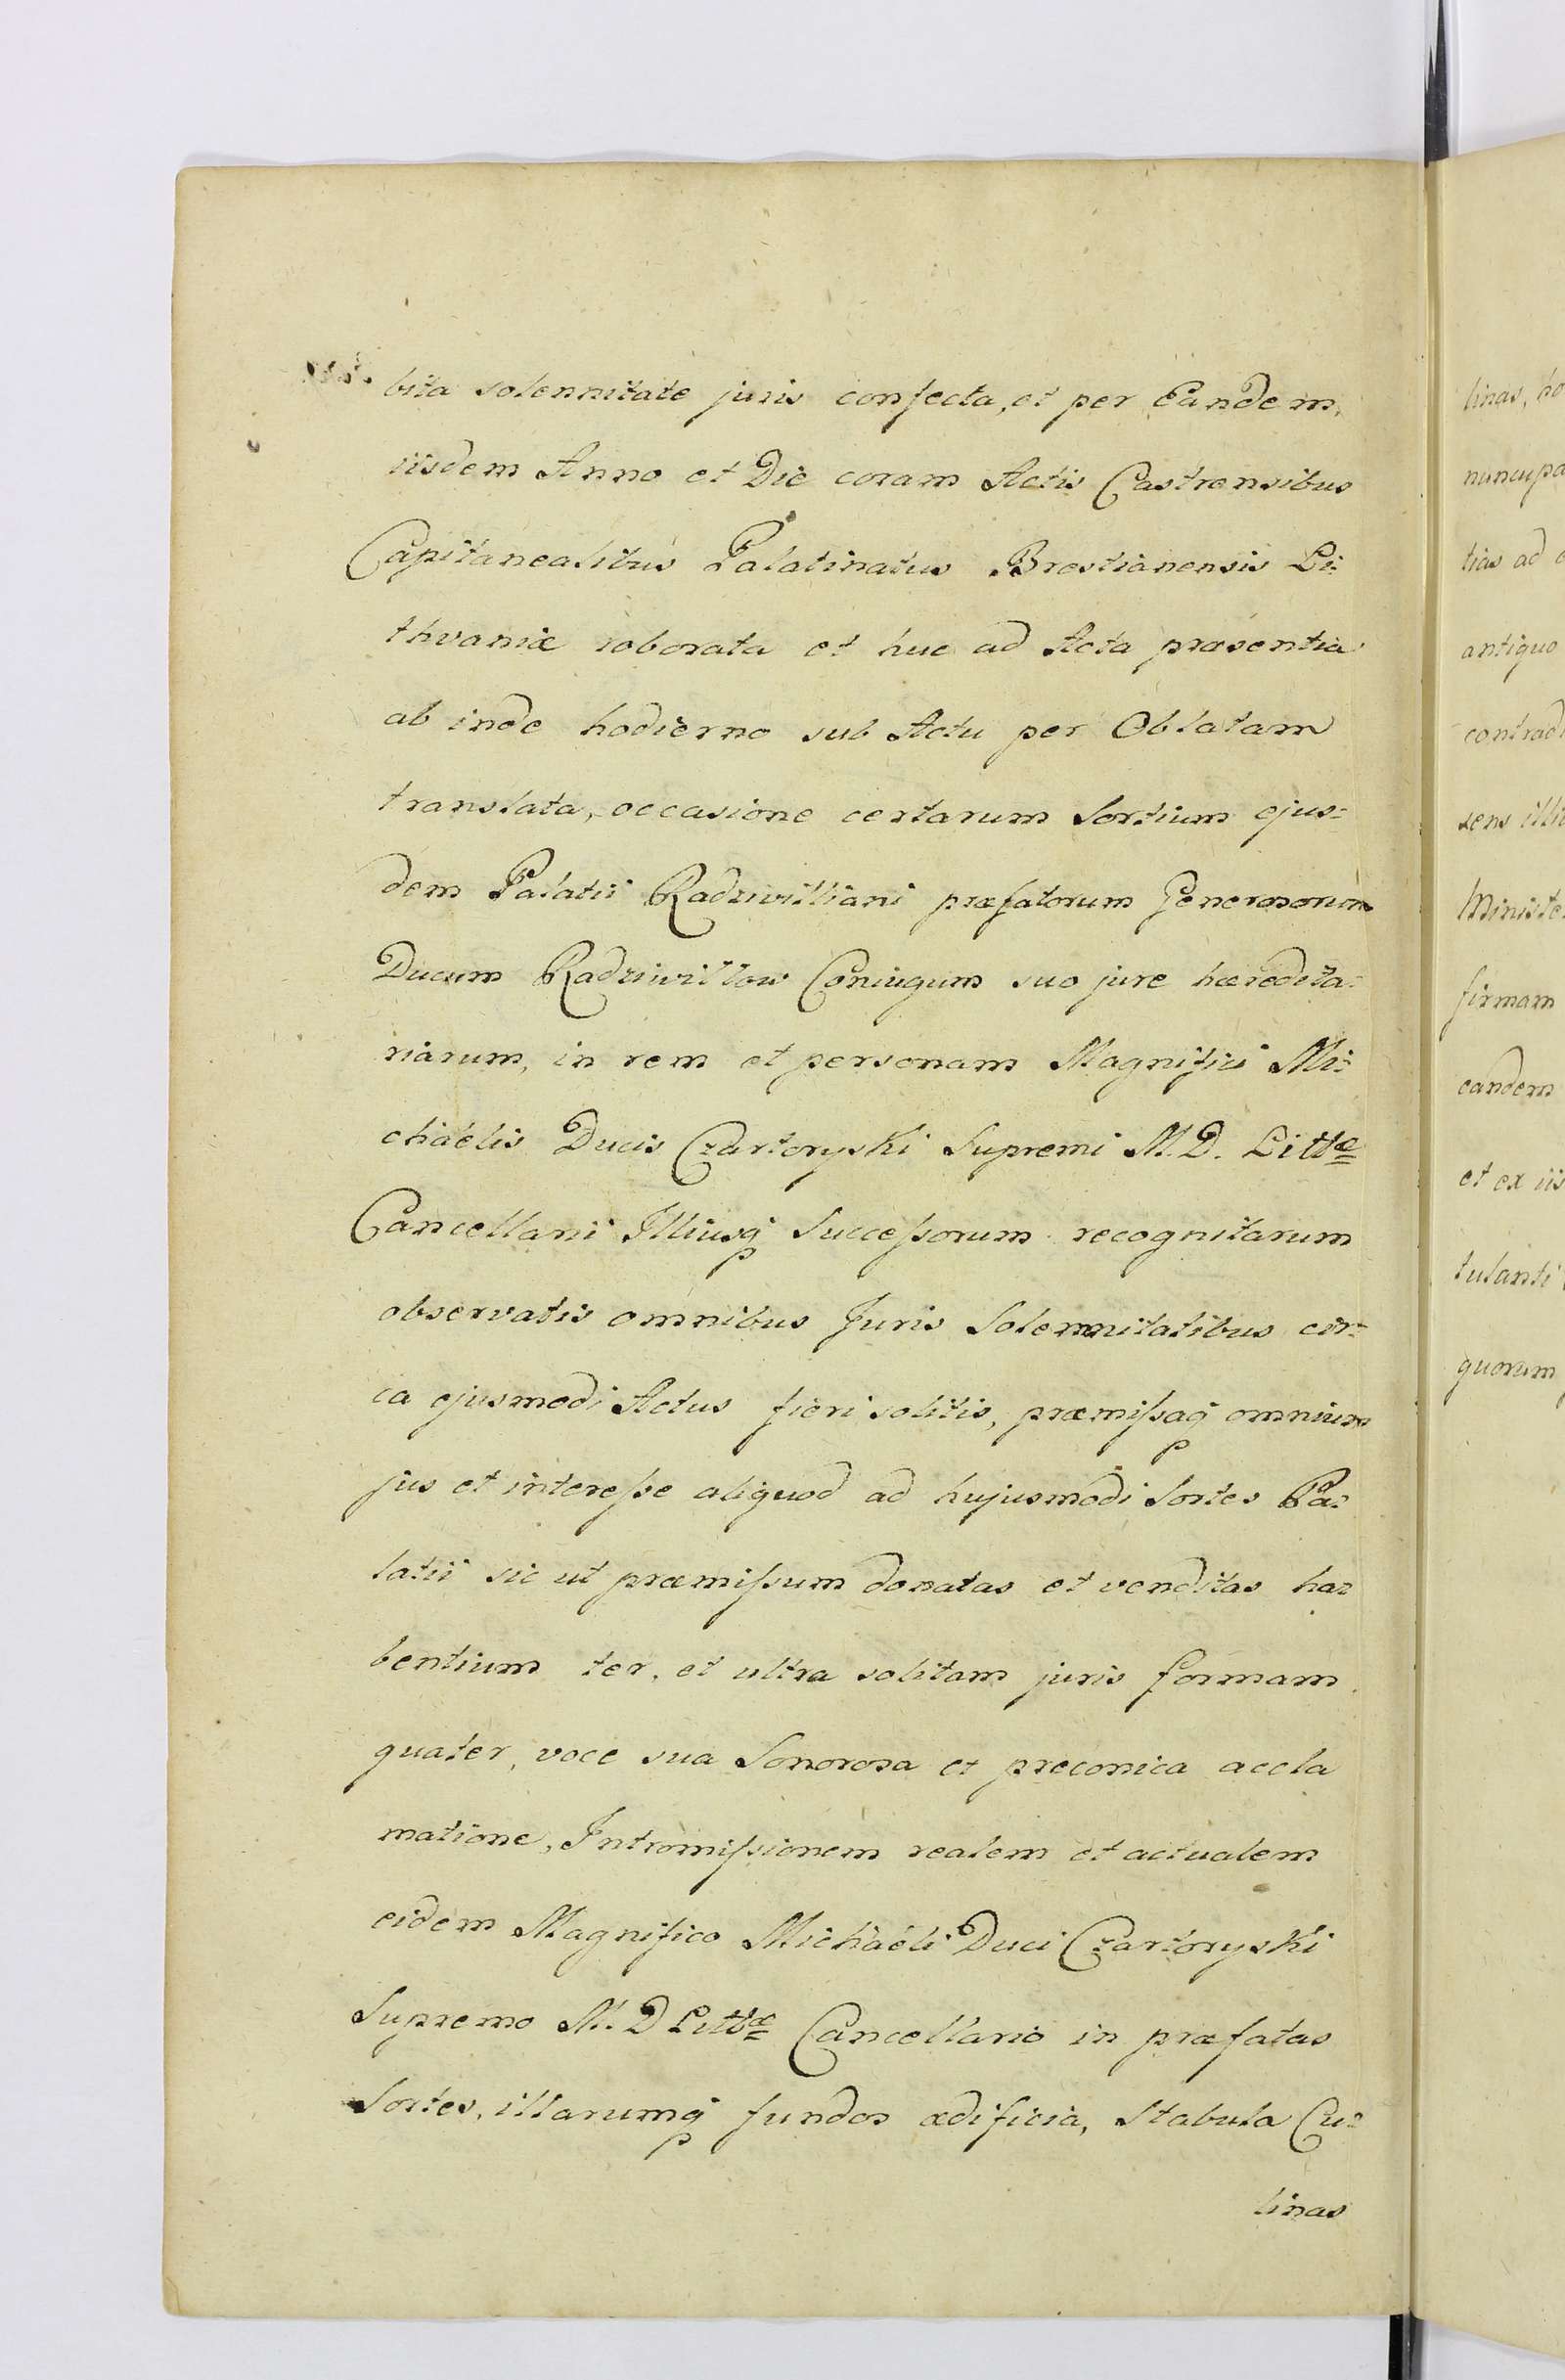 bita solennitate juris confecta, et per Eandem,
iisdem Anno et Die coram Actis Castrensibus
Capitanealibus Palatinatus Brestianensis Li:
thvaniæ roborata et huc ad Acta præsentia
ab inde hodierno sub Actu per Oblatam
translata, occasione certarum Sortium ejus=
dem Palatii Radziwilliani præfatorum Generosorum
Ducum Radziwiłłow Coniugum suo jure hæredita:
riarum, in rem et personam Magnifici Mi:
chaëlis Ducis Czartoryski Supremi M. D. Littæ
Cancellarii Illiusq Succeßorum recognitarum
observatis omnibus Juris Solemnitatibus cir=
ca ejusmodi Actus fieri solitis, præmißaq omnium
jus et intereße aliquod ad hujusmodi Sortes Pa:
latii sic ut præmißum donatas et venditas ha:
bentium ter, et ultra solitam juris formam
quater, voce sua Sonorosa et preconica accla
matione, Intromißionem realem et actualem
eidem Magnifico Michaëli Duci Czartoryski
Supremo M. D Littæ Cancellario in præfatas
Sortes, illarumq fundos ædificia, Stabula Cu:
linas
linas, ho
nuncupa
tias ad
antiquo
contradi
sens illi
Ministe
firmam
eandem
et ex iis
tulanti
quorum